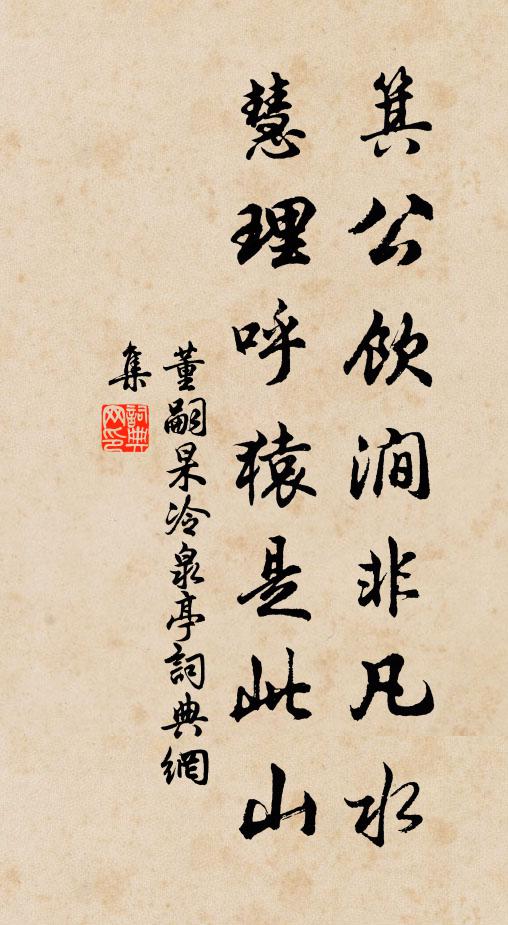 箕公飲澗非凡水
慧理呼猿是此山
董嗣杲冷泉亭詞典網
集
詞典
网印